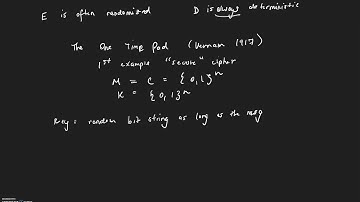 E is often randomized D is always deterministic
The One Time Pad (Vernam 1917)
1st example "secure" cipher
M = C = {0,1}^n
K = {0,1}^n
Key = random bit string as long as the msg